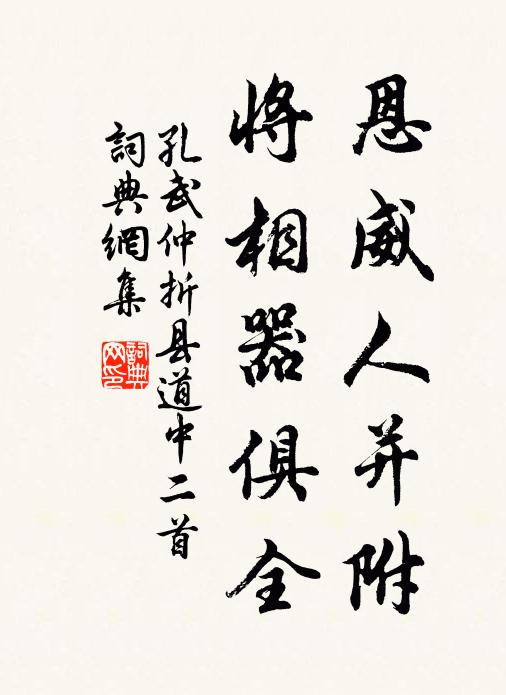 恩威人并附
将相器俱全
孔武仲折县道中二首
詞典網集
詞典網印